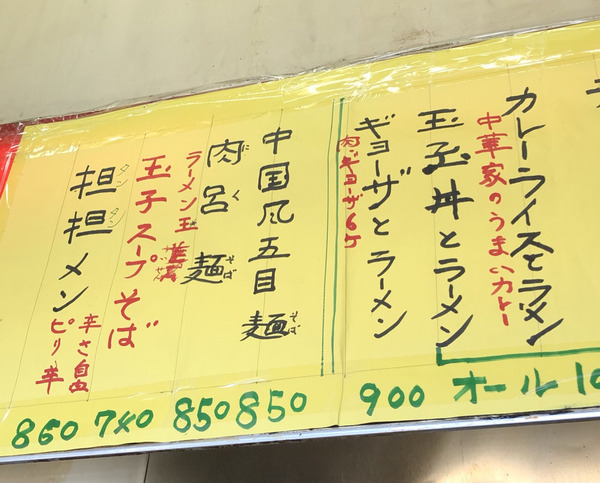 カレーライスとラーメン
中華家のうまいカレー
玉子丼とラーメン
オール10
ギョーザとラーメン
肉ギョーザ6ケ
900
中国風五目麺
そば
850
肉呂麺
にく
そば
850
ラーメン玉
玉子スープそば
740
担担メン
タン
タン
辛さ自由
ピリ辛
860